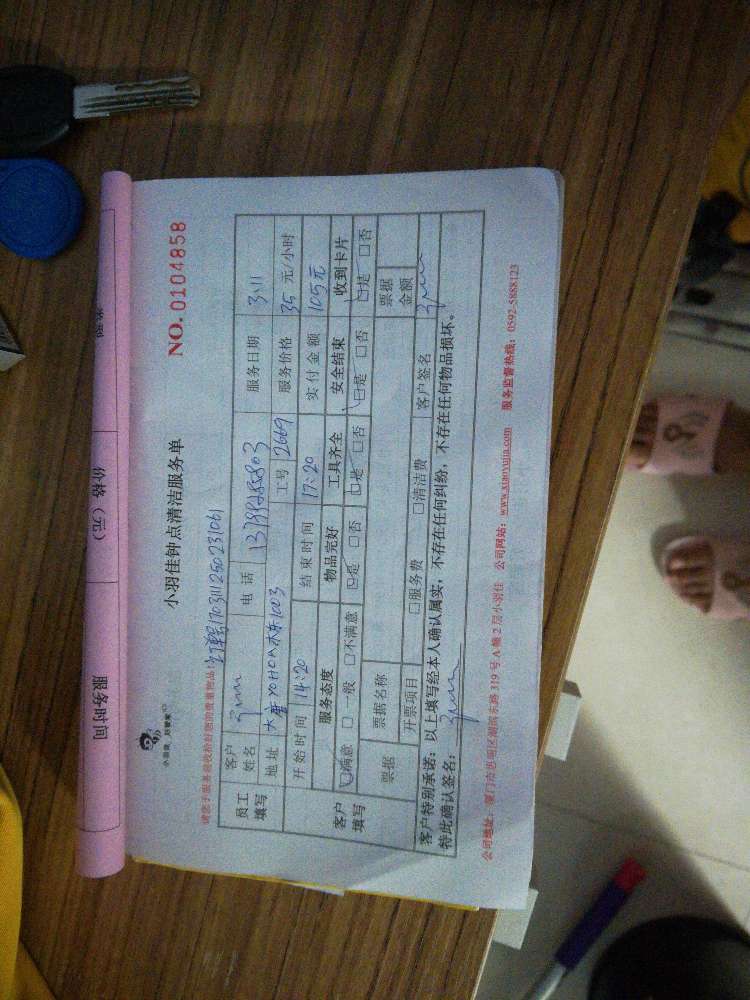 小羽佳钟点清洁服务单
NO. 0104858
小羽佳，好管家
请您于服务前收拾好您的贵重物品!
170311250231061
员工填写
客户姓名
电话
服务日期 3.11
地址
1003
工号 2669
服务价格 35 元/小时
开始时间 14:20
结束时间 17:20
实付金额 105元
客户填写
服务态度
物品完好
工具齐全
安全结束
收到卡片
□满意 □一般 □不满意
□是 □否
□是 □否
□是 □否
□是 □否
票据
票据名称
票据金额
开票项目
□服务费 □清洁费
客户签名
客户特别承诺：以上填写经本人确认属实，不存在任何纠纷，不存在任何物品损坏。
特此确认签名：
公司地址：厦门市思明区湖滨东路 319 号 A 幢 2 层小羽佳 公司网站：www.xiaoyujia.com 服务监督热线：0592-5888123
服务时间
价格（元）